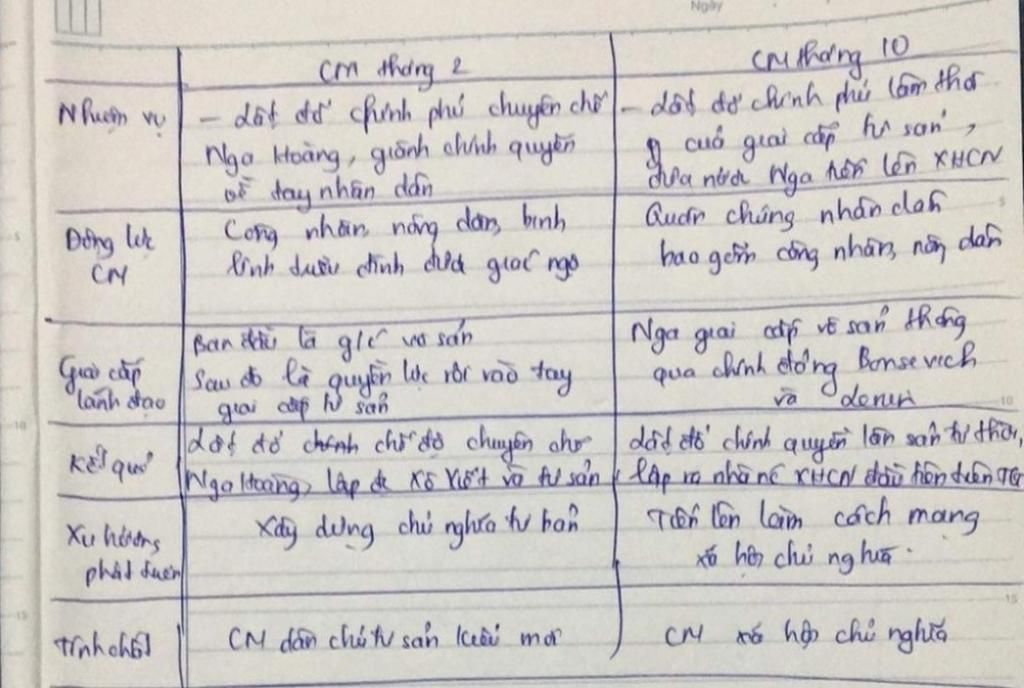 Ngày
CM tháng 2
CM tháng 10
Nhiệm vụ
– lật đổ chính phủ chuyên chế
Nga Hoàng, giành chính quyền
về tay nhân dân
– lật đổ chính phủ lâm thời
của giai cấp tư sản,
đưa nước Nga tiến lên XHCN
Động lực
CM
Công nhân, nông dân, binh
lính được giác ngộ
Quần chúng nhân dân
bao gồm công nhân, nông dân
Giai cấp
lãnh đạo
Ban đầu là g/c vô sản
Sau đó là quyền lực rơi vào tay
giai cấp tư sản
Nga giai cấp vô sản thông
qua chính đảng Bonsevich
và Lenin
Kết quả
Lật đổ chế độ chuyên chế
Nga Hoàng, lập Xô Viết và tư sản
lật đổ chính quyền tư
lập ra nhà nc XHCN đầu tiên trên TG
Xu hướng
phát triển
Xây dựng chủ nghĩa tư bản
Tiến lên làm cách mạng
xã hội chủ nghĩa.
Tính chất
CM dân chủ tư sản kiểu mới
CM xã hội chủ nghĩa
5
10
15
5
10
15